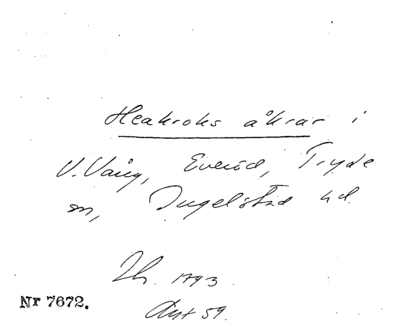 Heakroks åkrar i
V. Vång, Everöd, Tryde
sn, Ingelstad hd.
Lh. 1793
Akt 59.
Nr 7672.